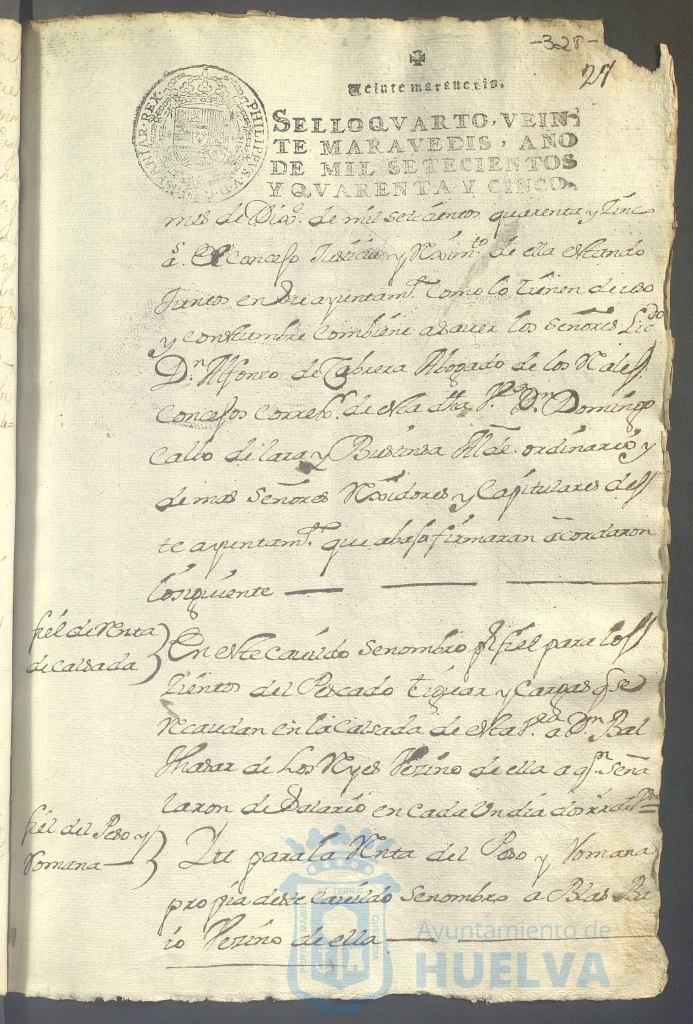 -328-
27
Veinte maravedis.
PHILIPPUS V D G HISPANIAR REX
SELLO QVARTO, VEIN-
TE MARAVEDIS, AÑO
DE MIL SETECIENTOS
Y QVARENTA Y CINCO.
mes de Diz.e de mil setecientos quarenta y Zinc
s. a. El Concejo Justicia y Reximto. de ella estando
Juntos en su ayuntamto. como lo tienen de uso
y constumbre combiene a saver los señores Licdo
Dn. Alfonso de Cabrera Abogado de los Rales.
Concejos Correxr. de esta dha Va. Dn Domingo
Calbo de lara y Alde. ordinario y
demas señores Rexidores y Capitulares des
te ayuntamto. que abajo firmaran acordaron
lo siguiente
fiel de Renta
de calsada
En este cavildo se nombro pr fiel para los
Zientos del Pescado y Cargas q. se
Recaudan en la Calsada de esta Va. a Dn Bal
thasar de Los Reyes Vezino de ella a qn. Seña
laron de Salario en cada Un dia dos rrs. de Vn
fiel del Peso y
Romana
Ytt para la Renta del Peso y Romana
propia deste Cavildo se nombro a Blas Ba
io Vezino de ella
Ayuntamiento de
HUELVA